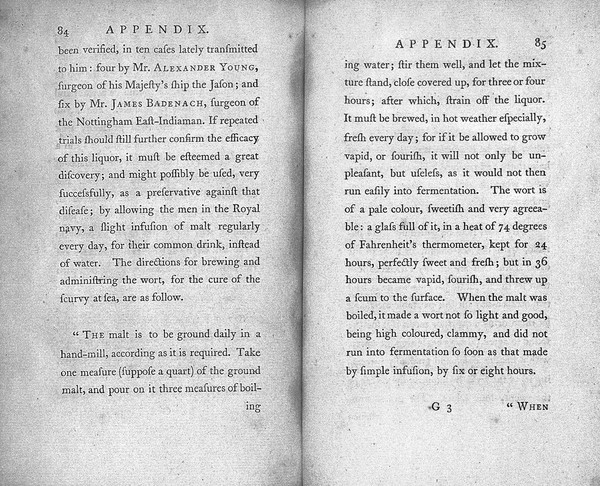 84 APPENDIX.
been verified, in ten caſes lately tranſmitted
to him: four by Mr. ALEXANDER YOUNG,
ſurgeon of his Majeſty's ſhip the Jaſon; and
ſix by Mr. JAMES BADENACH, ſurgeon of
the Nottingham Eaſt-Indiaman. If repeated
trials ſhould ſtill further confirm the efficacy
of this liquor, it muſt be eſteemed a great
diſcovery; and might poſſibly be uſed, very
ſucceſsfully, as a preſervative againſt that
diſeaſe; by allowing the men in the Royal
navy, a ſlight infuſion of malt regularly
every day, for their common drink, inſtead
of water. The directions for brewing and
adminiſtring the wort, for the cure of the
ſcurvy at ſea, are as follow.
“ THE malt is to be ground daily in a
hand-mill, according as it is required. Take
one meaſure (ſuppoſe a quart) of the ground
malt, and pour on it three meaſures of boil-
ing
APPENDIX. 85
ing water; ſtir them well, and let the mix-
ture ſtand, cloſe covered up, for three or four
hours; after which, ſtrain off the liquor.
It muſt be brewed, in hot weather eſpecially,
freſh every day; for if it be allowed to grow
vapid, or ſouriſh, it will not only be un-
pleaſant, but uſeleſs, as it would not then
run eaſily into fermentation. The wort is
of a pale colour, ſweetiſh and very agreea-
ble: a glaſs full of it, in a heat of 74 degrees
of Fahrenheit's thermometer, kept for 24
hours, perfectly ſweet and freſh; but in 36
hours became vapid, ſouriſh, and threw up
a ſcum to the ſurface. When the malt was
boiled, it made a wort not ſo light and good,
being high coloured, clammy, and did not
run into fermentation ſo ſoon as that made
by ſimple infuſion, by ſix or eight hours.
G 3 “ WHEN